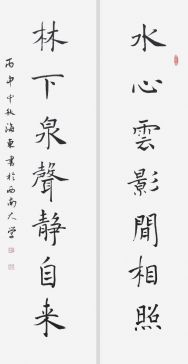 水心雲影閒相照
林下泉聲靜自来
丙申中秋海東書於西南大學